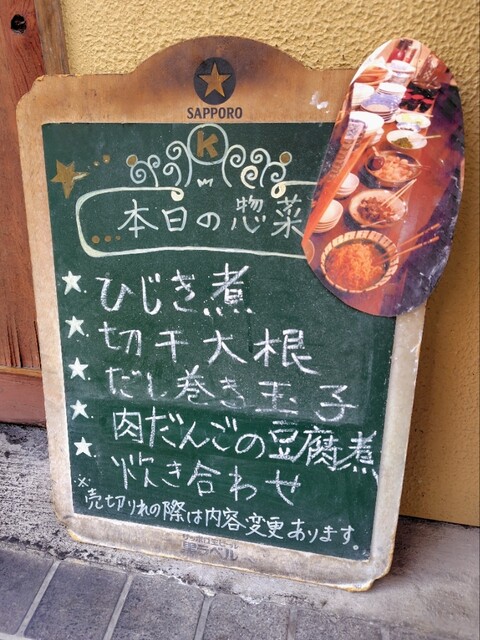 SAPPORO
K
本日の惣菜
ひじき煮
切干大根
だし巻き玉子
肉だんごの豆腐煮
炊き合わせ
※売切りれの際は内容変更あります。
サッポロ生ビール
黒ラベル